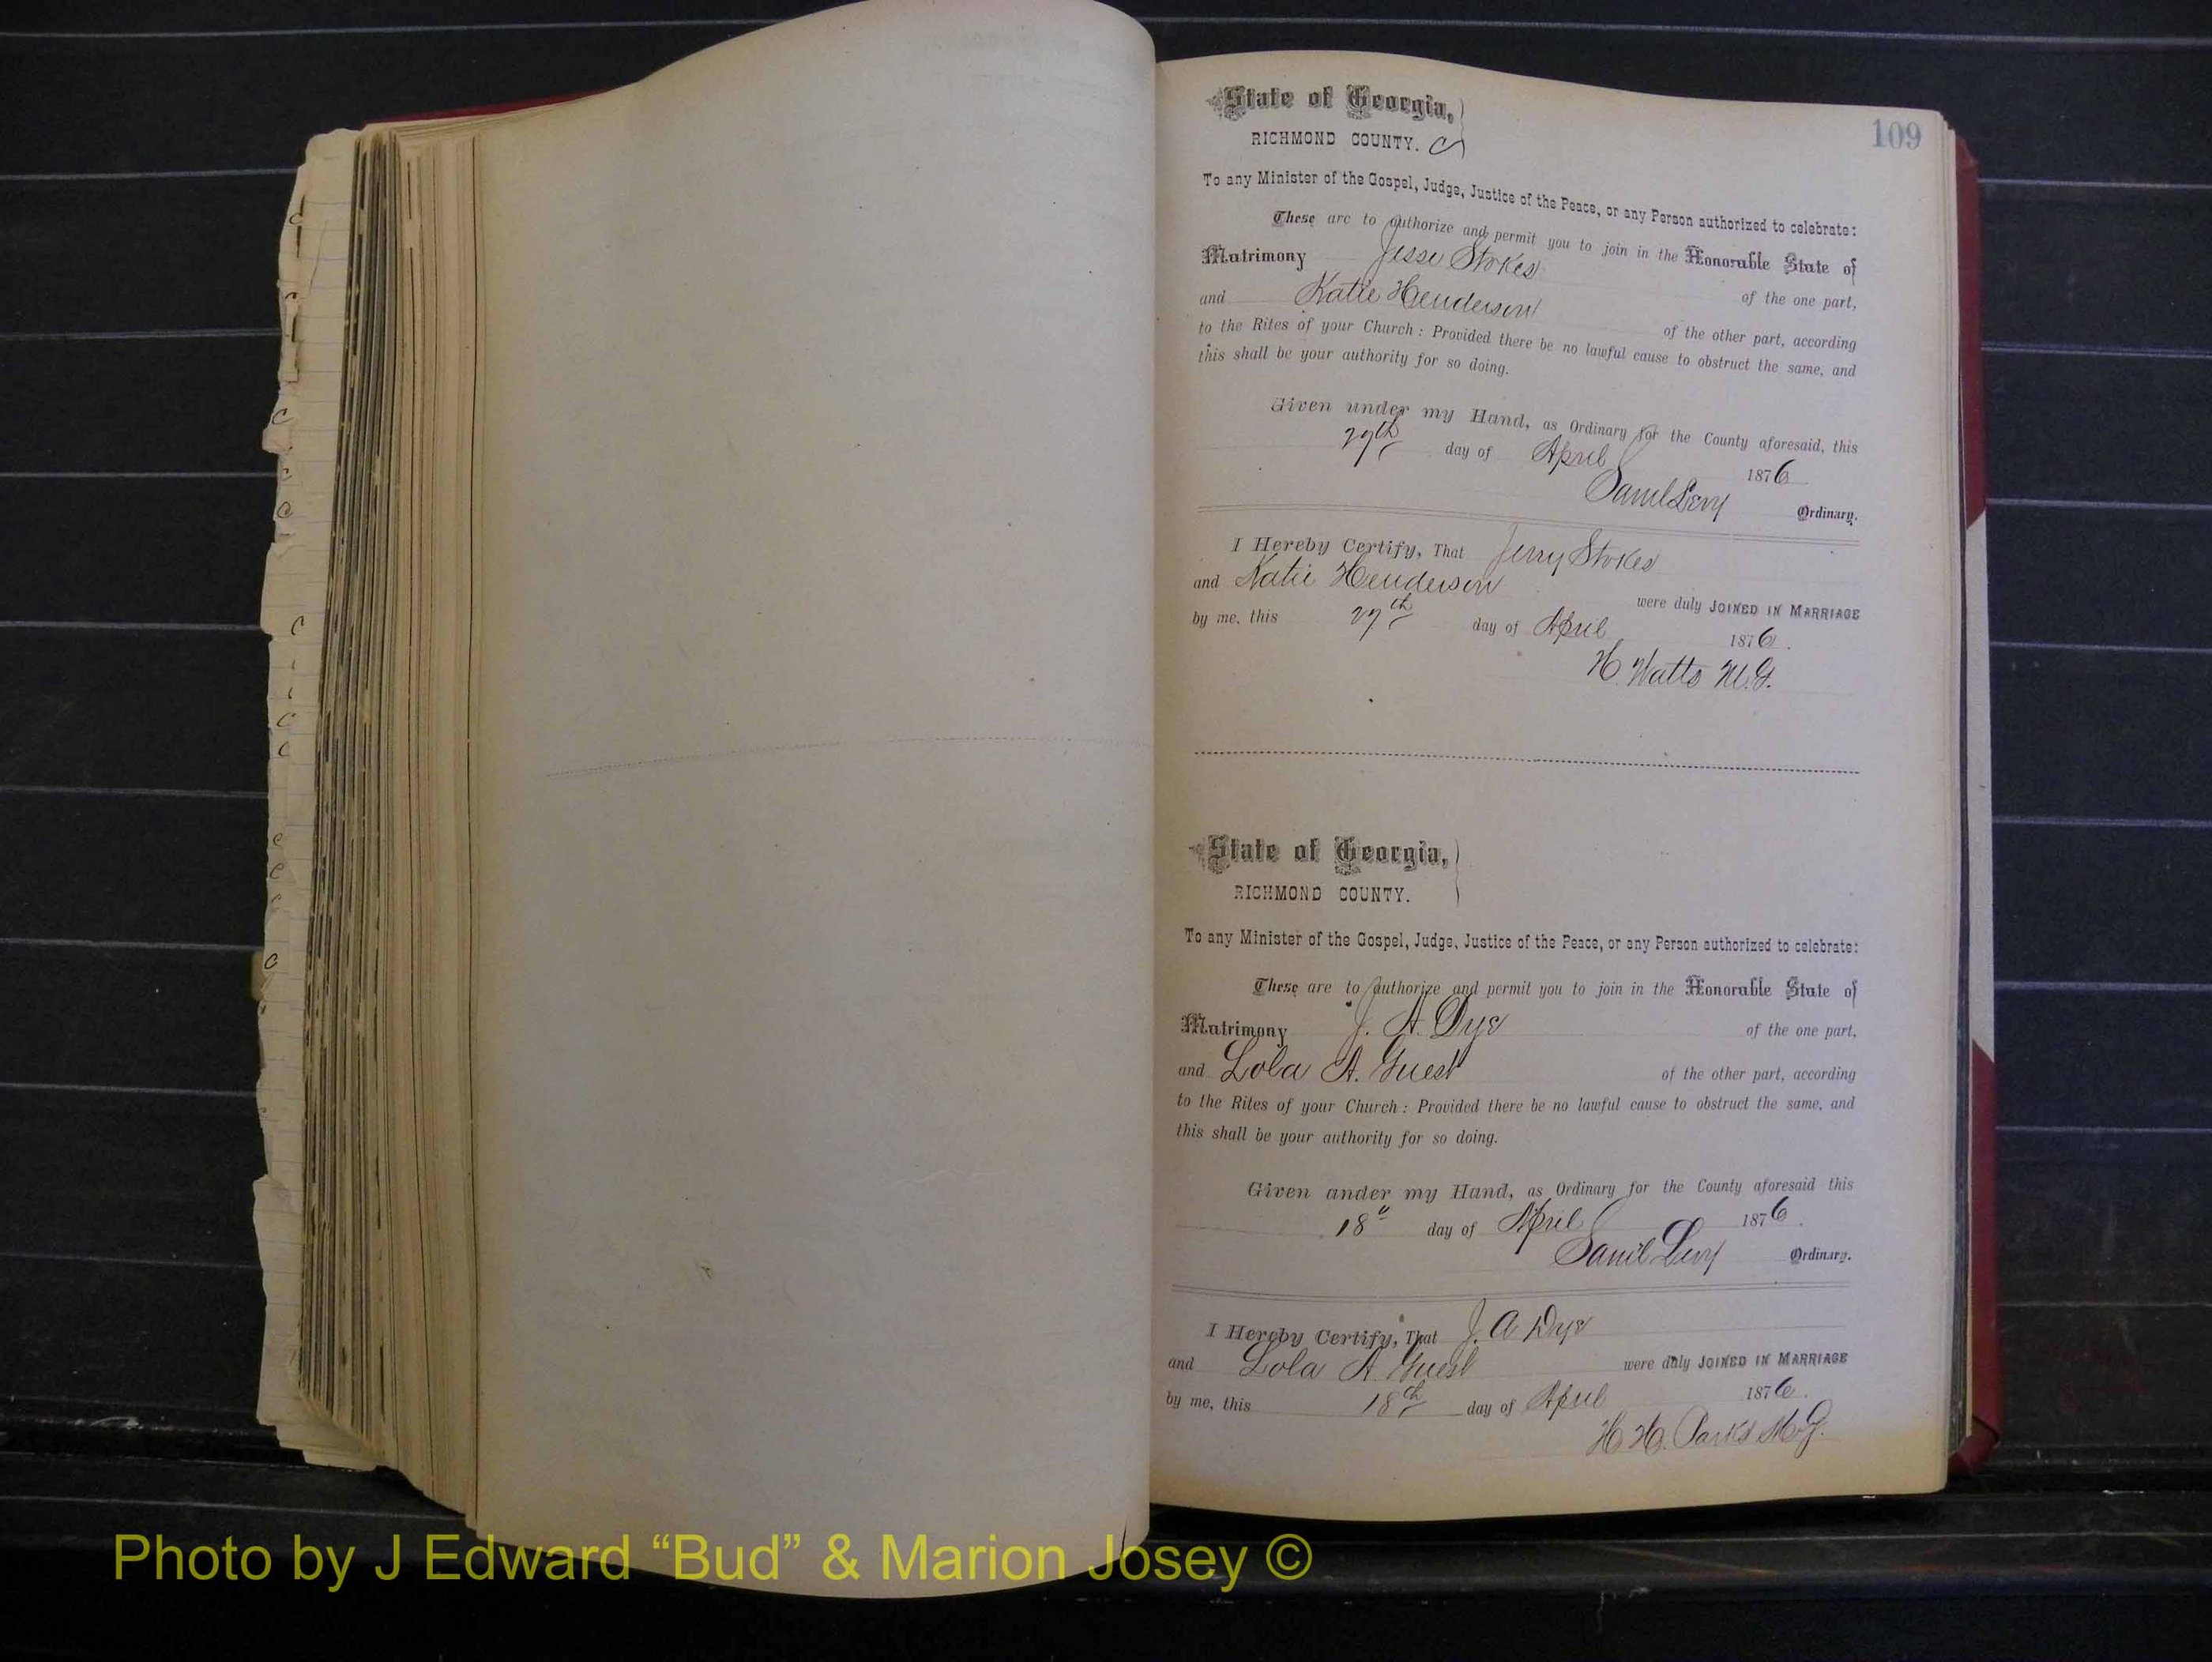 109
State of Georgia,
RICHMOND COUNTY. C
To any Minister of the Gospel, Judge, Justice of the Peace, or any Person authorized to celebrate:
These are to authorize and permit you to join in the Honorable State of
Matrimony Jesse Stokes of the one part,
and Katie Henderson of the other part, according
to the Rites of your Church: Provided there be no lawful cause to obstruct the same, and
this shall be your authority for so doing.
Given under my Hand, as Ordinary for the County aforesaid, this
27th day of April 1876
Saml Levy Ordinary.
I Hereby Certify, That Jerry Stokes
and Katie Henderson were duly JOINED IN MARRIAGE
by me, this 27th day of April 1876.
H. Watts M.G.
State of Georgia,
RICHMOND COUNTY.
To any Minister of the Gospel, Judge, Justice of the Peace, or any Person authorized to celebrate:
These are to authorize and permit you to join in the Honorable State of
Matrimony J. A. Dye of the one part,
and Lola A. Guest of the other part, according
to the Rites of your Church: Provided there be no lawful cause to obstruct the same, and
this shall be your authority for so doing.
Given under my Hand, as Ordinary for the County aforesaid this
18" day of April 1876.
Saml Levy Ordinary.
I Hereby Certify, That J. A Dye
and Lola A. Guest were duly JOINED IN MARRIAGE
by me, this 18th day of April 1876.
H. H. Parks M.G.
Photo by J Edward “Bud” & Marion Josey ©